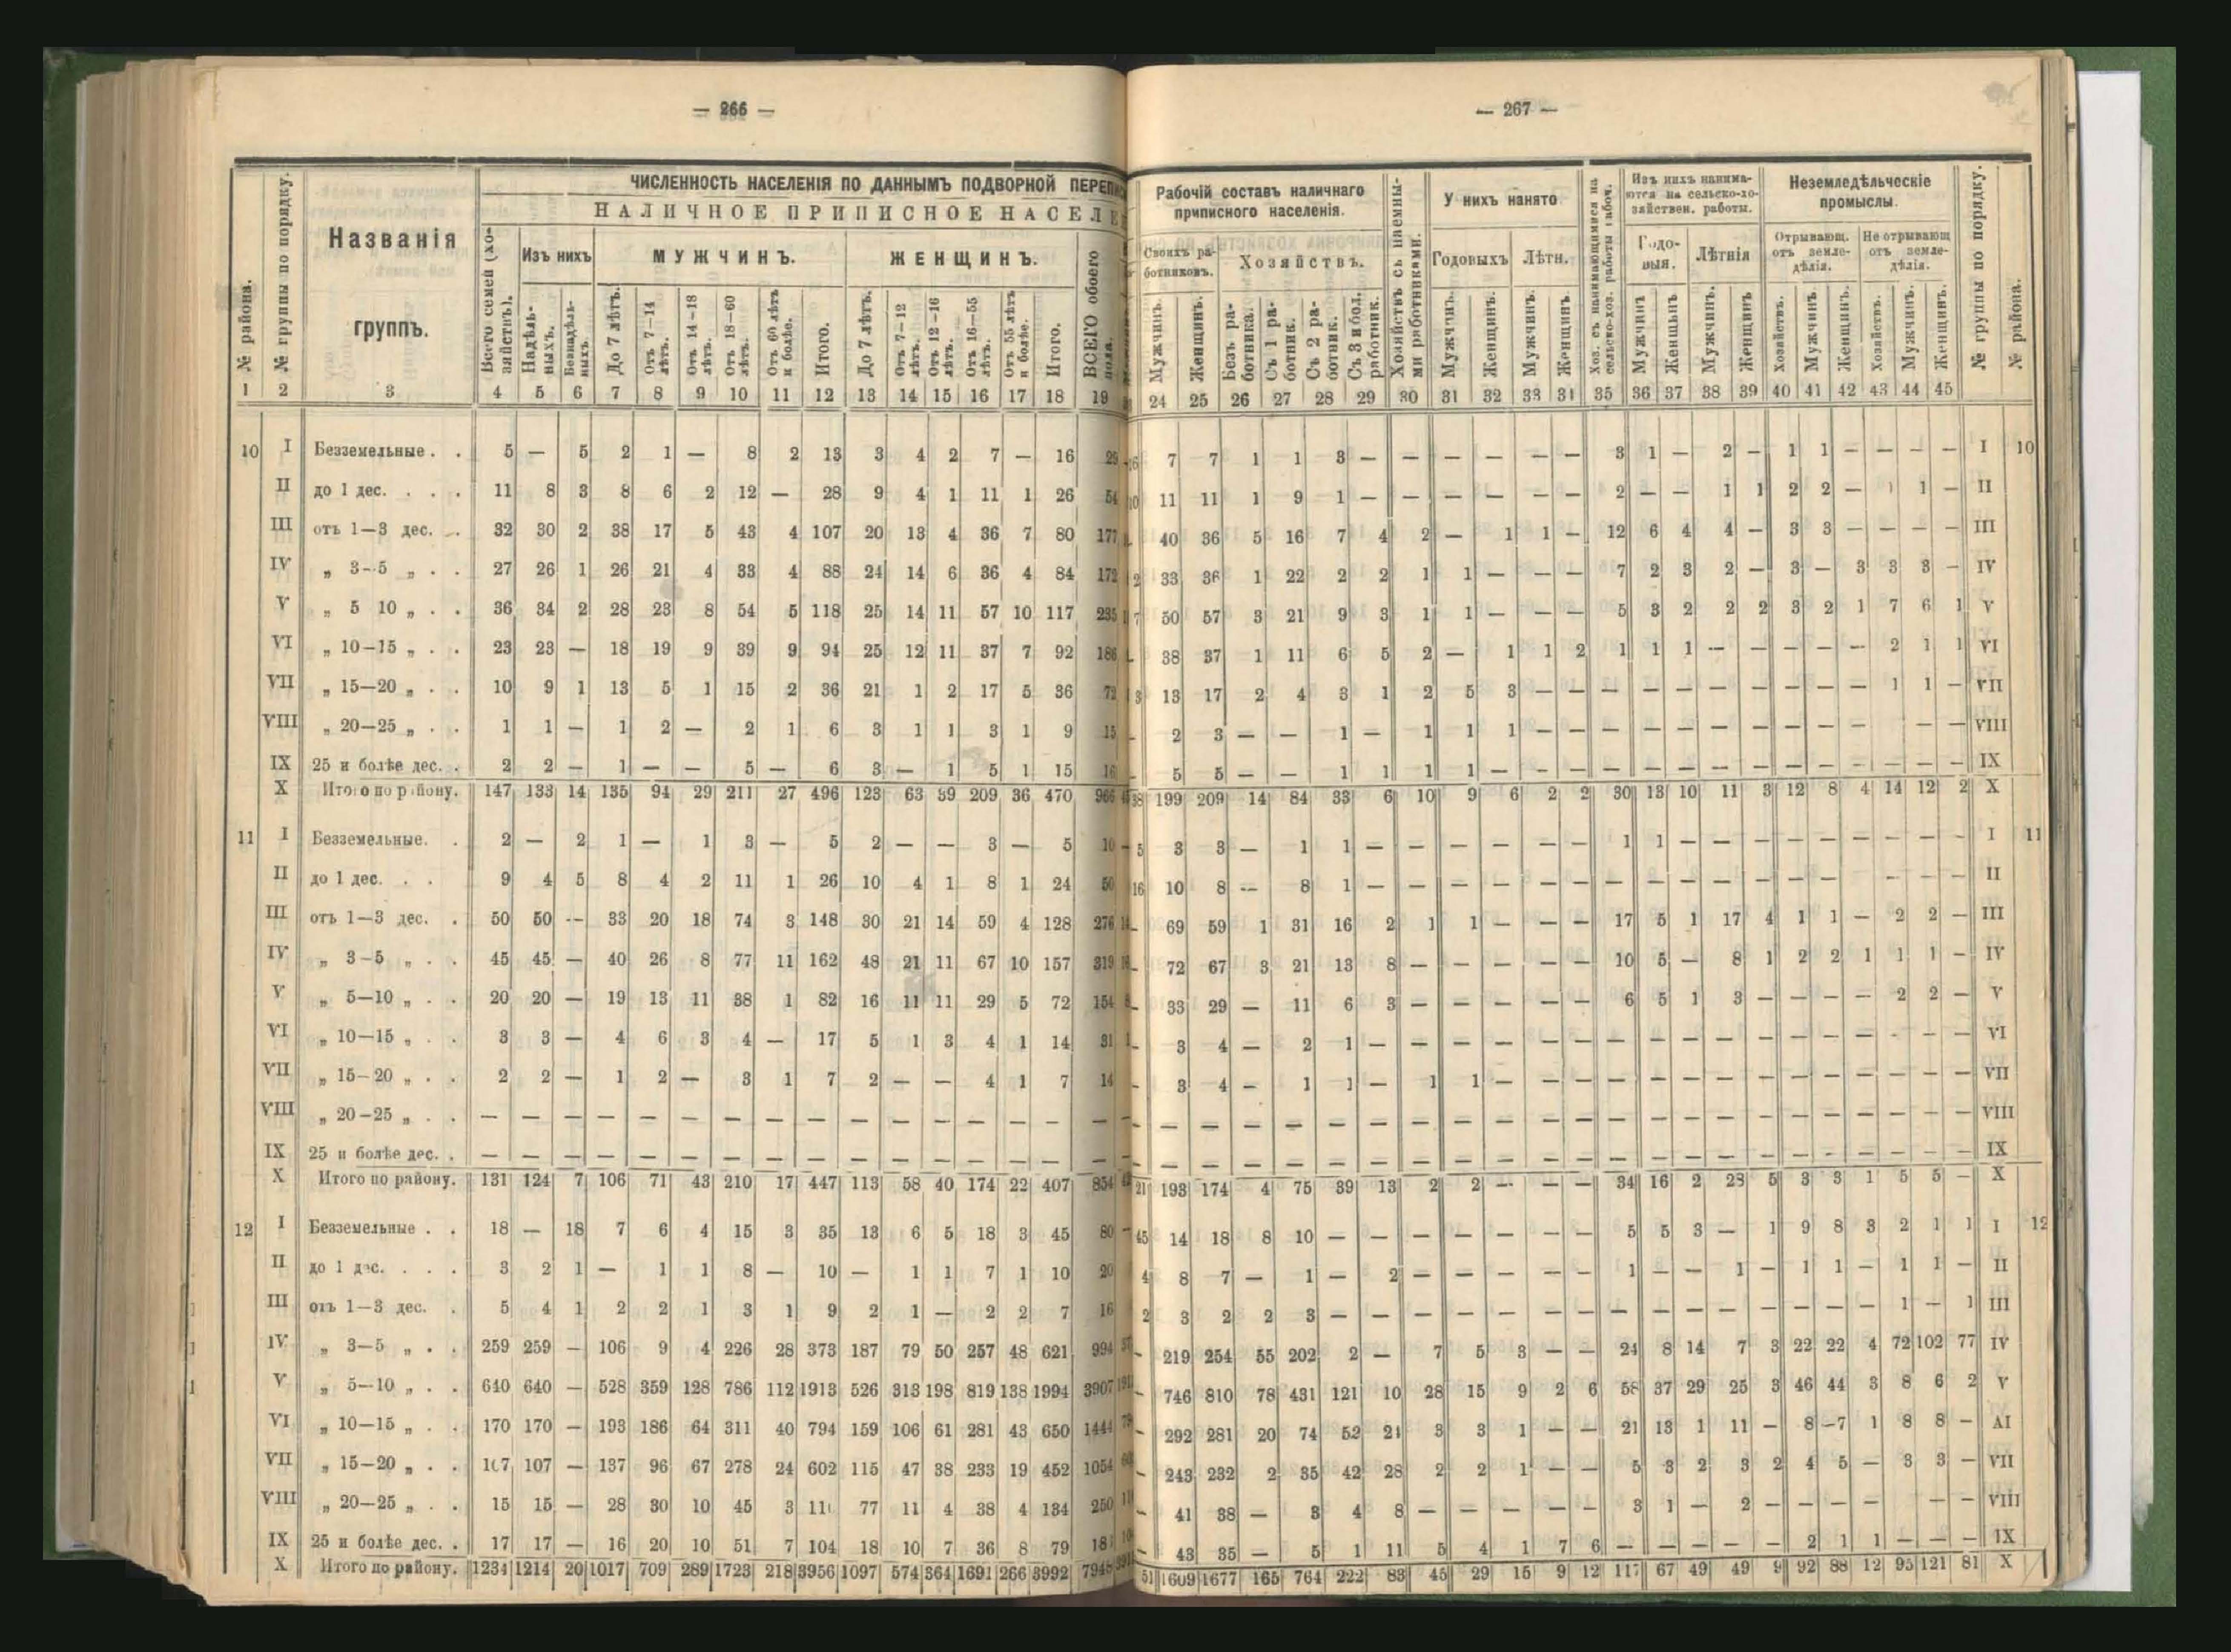 — 266 —
№ района.
№ группы по порядку.
Названія
группъ.
ЧИСЛЕННОСТЬ НАСЕЛЕНІЯ ПО ДАННЫМЪ ПОДВОРНОЙ
НАЛИЧНОЕ ПРИПИСНОЕ
Всего семей (хозяйствъ).
Изъ нихъ
Надѣльныхъ.
Безнадѣльныхъ.
МУЖЧИНЪ.
До 7 лѣтъ.
Отъ 7—14 лѣтъ.
Отъ 14—18 лѣтъ.
Отъ 18—60 лѣтъ.
Отъ 60 лѣтъ и болѣе.
Итого.
ЖЕНЩИНЪ.
До 7 лѣтъ.
Отъ 7—12 лѣтъ.
Отъ 12—16 лѣтъ.
Отъ 16—55 лѣтъ.
Отъ 55 лѣтъ и болѣе.
Итого.
ВСЕГО обоего
1 2 3 4 5 6 7 8 9 10 11 12 13 14 15 16 17 18 19
10 I Безземельные . . 5 — 5 2 1 — 8 2 13 3 4 2 7 — 16 29
II до 1 дес. . . . 11 8 3 8 6 2 12 — 28 9 4 1 11 1 26 54
III отъ 1—3 дес. . 32 30 2 38 17 5 43 4 107 20 13 4 36 7 80 177
IV „ 3-5 „ . . 27 26 1 26 21 4 33 4 88 24 14 6 36 4 84 172
V „ 5 10 „ . . 36 34 2 28 23 8 54 5 118 25 14 11 57 10 117 235
VI „ 10—15 „ . . 23 23 — 18 19 9 39 9 94 25 12 11 37 7 92 186
VII „ 15—20 „ . . 10 9 1 13 5 1 15 2 36 21 1 2 17 5 36 72
VIII „ 20—25 „ . . 1 1 — 1 2 — 2 1 6 3 1 1 3 1 9 15
IX 25 и болѣе дес. . 2 2 — 1 — — 5 — 6 3 — 1 5 1 15 16
X Итого по району. 147 133 14 135 94 29 211 27 496 123 63 39 209 36 470 966
11 I Безземельные. . 2 — 2 1 — 1 3 — 5 2 — — 3 — 5 10
II до 1 дес. . . 9 4 5 8 4 2 11 1 26 10 4 1 8 1 24 50
III отъ 1—3 дес. . 50 50 -- 33 20 18 74 3 148 30 21 14 59 4 128 276
IV „ 3—5 „ . . 45 45 — 40 26 8 77 11 162 48 21 11 67 10 157 319
V „ 5—10 „ . . 20 20 — 19 13 11 38 1 82 16 11 11 29 5 72 154
VI „ 10—15 „ . . 3 3 — 4 6 3 4 — 17 5 1 3 4 1 14 31
VII „ 15—20 „ . . 2 2 — 1 2 — 3 1 7 2 — — 4 1 7 14
VIII „ 20—25 „ . . — — — — — — — — — — — — — — — —
IX 25 и болѣе дес. . — — — — — — — — — — — — — — — —
X Итого по району. 131 124 7 106 71 43 210 17 447 113 58 40 174 22 407 854
12 I Безземельные . . 18 — 18 7 6 4 15 3 35 13 6 5 18 3 45 80
II до 1 дес. . . . 3 2 1 — 1 1 8 — 10 — 1 1 7 1 10 20
III отъ 1—3 дес. . 5 4 1 2 2 1 3 1 9 2 1 — 2 2 7 16
IV „ 3—5 „ . . 259 259 — 106 9 4 226 28 373 187 79 50 257 48 621 994
V „ 5—10 „ . . 640 640 — 528 359 128 786 112 1913 526 313 198 819 138 1994 3907
VI „ 10—15 „ . . 170 170 — 193 186 64 311 40 794 159 106 61 281 43 650 1444
VII „ 15—20 „ . . 107 107 — 137 96 67 278 24 602 115 47 38 233 19 452 1054
VIII „ 20—25 „ . . 15 15 — 28 30 10 45 3 77 11 4 38 4 134 250
IX 25 и болѣе дес. . 17 17 — 16 20 10 51 7 104 18 10 7 36 8 79
X Итого по району. 1234 1214 20 1017 709 289 1723 218 3956 1097 574 364 1691 266 3992
— 267 —
Рабочій составъ наличнаго
приписного населенія.
Своихъ работниковъ.
Мужчинъ.
Женщинъ.
Хозяйствъ.
Безъ работника.
Съ 1 работник.
Съ 2 работник.
Съ 3 и бол. работник.
Хозяйствъ съ наемными работниками.
У нихъ нанято
Годовыхъ
Мужчинъ.
Женщинъ.
Лѣтн.
Мужчинъ.
Женщинъ.
Хоз. съ нанимающимися на сельско-хоз. работы рабоч.
Изъ нихъ нанимаются на сельско-хозяйствен. работы.
Годовыя.
Мужчинъ
Женщинъ
Лѣтнія
Мужчинъ.
Женщинъ
Неземледѣльческіе
промыслы.
Отрывающ. отъ земледѣлія.
Хозяйствъ.
Мужчинъ.
Женщинъ.
Не отрывающ отъ земледѣлія.
Хозяйствъ.
Мужчинъ.
Женщинъ.
№ группы по порядку.
№ района.
24 25 26 27 28 29 30 31 32 33 34 35 36 37 38 39 40 41 42 43 44 45
7 7 1 1 3 — — — — — — 3 1 — 2 — 1 1 — — — — I 10
11 11 1 9 1 — — — — — — 2 — — 1 1 2 2 — 1 1 — II
40 36 5 16 7 4 2 — 1 1 — 12 6 4 4 — 3 3 — — — — III
33 36 1 22 2 2 1 1 — — — 7 2 3 2 — 3 — 3 3 3 — IV
50 57 3 21 9 3 1 1 — — — 5 3 2 2 2 3 2 1 7 6 1 V
38 37 1 11 6 5 2 — 1 1 2 1 1 1 -- — — — — 2 1 1 VI
13 17 2 4 3 1 2 5 3 — — — — — — — — — — 1 1 — VII
2 3 — — 1 — 1 1 1 — — — — — — — — — — — — VIII
5 5 — — 1 1 1 1 — — — — — — — — — — — — — — IX
199 209 14 84 33 6 10 9 6 2 2 30 13 10 11 3 12 8 4 14 12 2 X
3 3 — 1 1 — — — — — — 1 1 — — — — — — — — — I 11
10 8 -- 8 1 — — — — — — — — — — — — — - - — II
69 59 1 31 16 2 1 1 — — — 17 5 1 17 4 1 1 — 2 2 — III
72 67 3 21 13 8 — — — — — 10 5 — 8 1 2 2 1 1 1 — IV
33 29 — 11 6 3 — — — — — 6 5 1 3 — — — — 2 2 — V
3 4 — 2 1 — — — — — — — — — — — — — — - — — VI
3 4 — 1 1 — 1 1 — — — — — — — — — — — — — — VII
— — — — — — — — — — — — — — — — — — — — — — VIII
— — — — — — — — — — — — — — — — — — — — — — IX
193 174 4 75 39 13 2 2 — — — 34 16 2 28 5 3 3 1 5 5 — X
14 18 8 10 — — — — — — — 5 5 3 — 1 9 8 3 2 1 1 I 12
8 7 — 1 — 2 — — — — — 1 — — 1 — 1 1 — 1 1 — II
3 2 2 3 — — — — — — — — — — — — — — — 1 — 1 III
219 254 55 202 2 — 7 5 3 — — 24 8 14 7 3 22 22 4 72 102 77 IV
746 810 78 431 121 10 28 15 9 2 6 58 37 29 25 3 46 44 3 8 6 2 V
292 281 20 74 52 21 3 3 1 — — 21 13 1 11 — 8 –7 1 8 8 — VI
243 232 2 35 42 28 2 2 1 — — 5 3 2 3 2 4 5 — 3 3 — VII
41 38 — 3 4 8 — — — — — 3 1 — 2 — — — — — — VIII
43 35 — 5 1 11 5 4 1 7 6 — — — — — 2 1 1 — — — IX
1609 1677 165 764 222 83 45 29 15 9 12 117 67 49 49 9 92 88 12 95 121 81 X